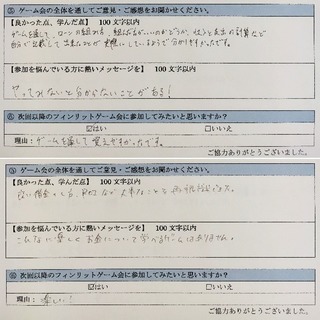 ⑤ ゲーム会の全体を通してご意見・ご感想をお聞かせください。
【良かった点、学んだ点】 100 文字以内
ゲームを通して、ローンの組み方、
自分で
【参加を悩んでいる方に熱いメッセージを】 100 文字以内
やってみないと分からないことがある!
⑥ 次回以降のフィンリットゲーム会に参加してみたいと思いますか?
☑はい □いいえ
理由: ゲームを通して覚えやすかったです。
ご協力ありがとうございました。
⑤ ゲーム会の全体を通してご意見・ご感想をお聞かせください。
【良かった点、学んだ点】 100 文字以内
良い借金の仕方、など大事なことを
【参加を悩んでいる方に熱いメッセージを】 100 文字以内
こんなに楽しくお金について学べるゲームはありません。
⑥ 次回以降のフィンリットゲーム会に参加してみたいと思いますか?
☑はい □いいえ
理由: 楽しい!
ご協力ありがとうございました。